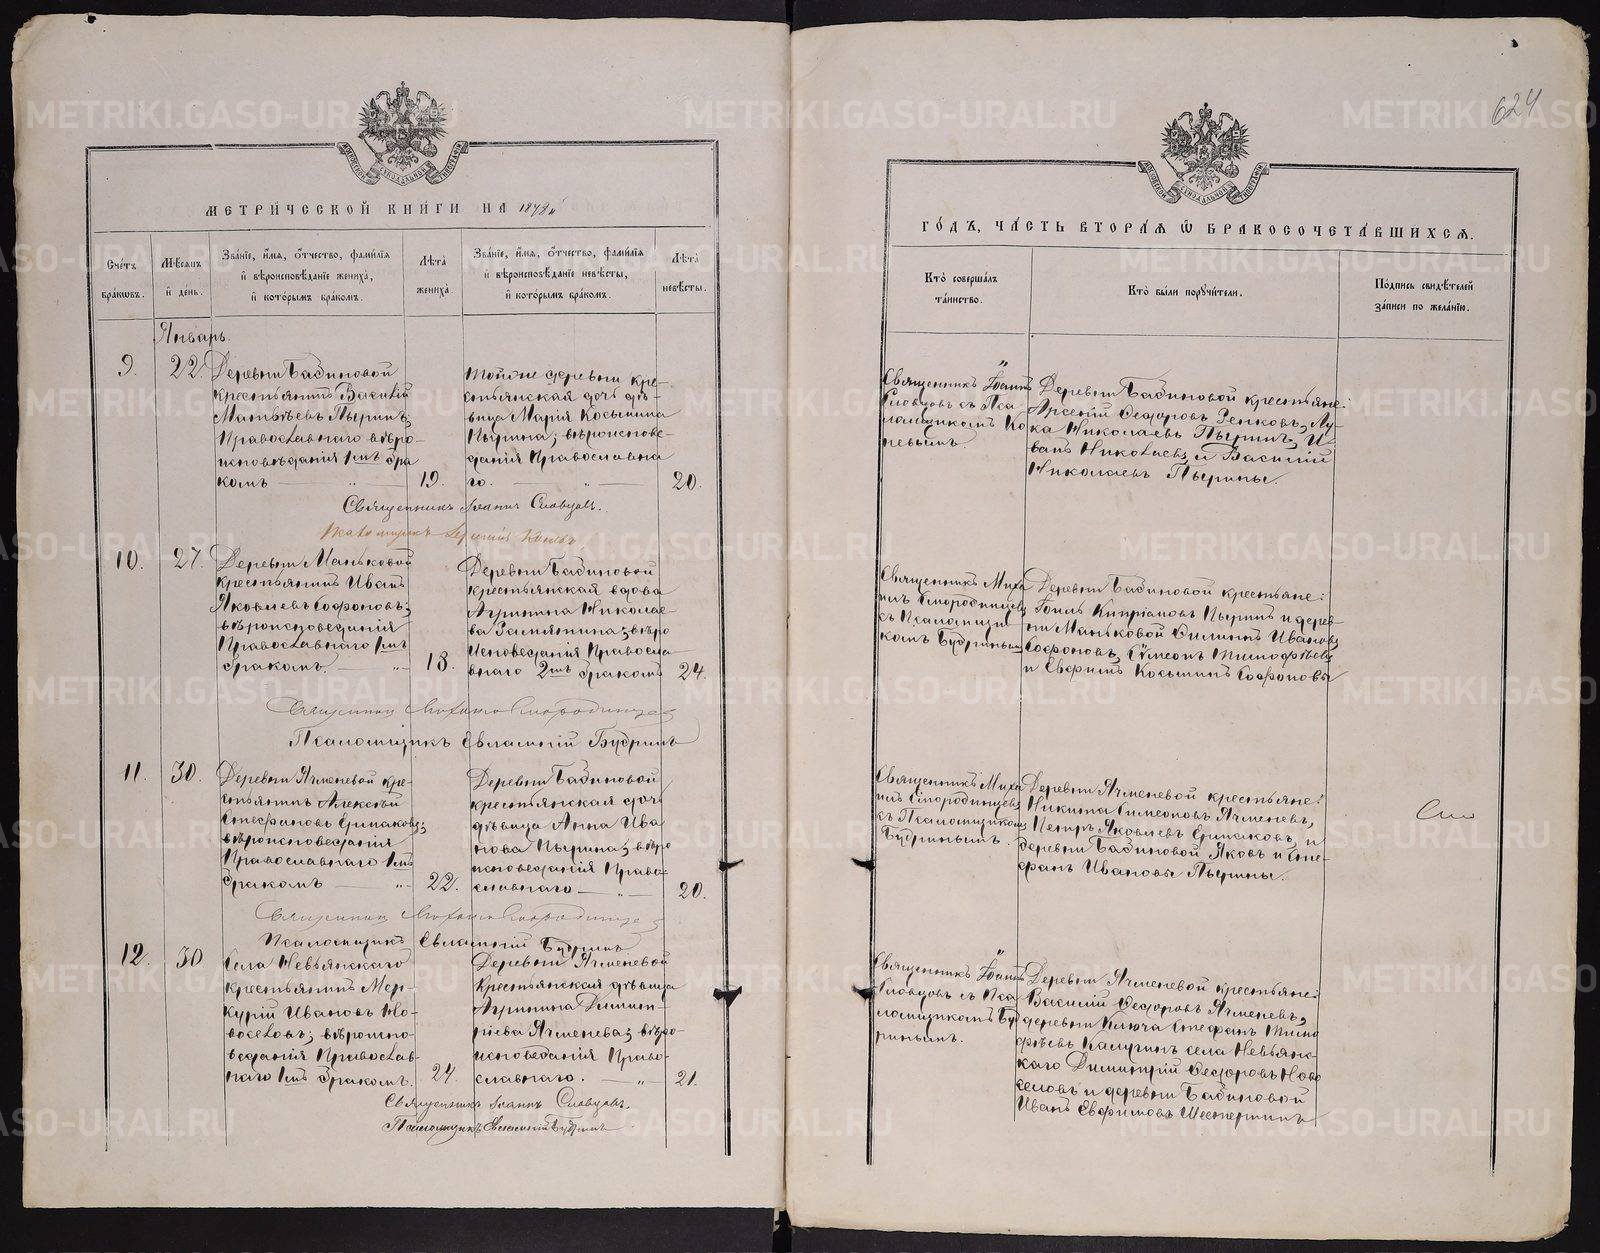 624
МЕТРИ́ЧЕСКОЙ КНИ́ГИ НА 1898й
Сче́тъ бра́кѡвъ.
Мѣ́сяцъ и҆ де́нь.
Зва́нїе, и҆́мѧ, ѻ҆́тчество, фами́лїѧ
и҆ вѣроисповѣ́данїе жениха̀,
и҆ кото́рымъ бра́комъ.
Лѣ́та
жениха̀.
Зва́нїе, и҆́мѧ, ѻ҆́тчество, фами́лїѧ
и҆ вѣроисповѣ́данїе невѣ́сты,
и҆ кото́рымъ бра́комъ.
Лѣ́та
невѣ́сты.
Январь.
9.
22.
Деревни Бабиновой
крестьянинъ Василій
Матвѣевъ Пыринъ;
Православнаго вѣро-
исповѣданія 1мъ бра
комъ
19.
тойже деревни кре-
стьянская дочь дѣ-
вица Марія Косьмина
Пырина; вѣроиспове-
данія Православна
го.
20.
Священникъ Іоаннъ Словцовъ.
10.
27.
Деревни Маньковой
крестьянинъ Иванъ
Яковлевъ Софоновъ;
вѣроисповеданія
Православнаго 1мъ
бракомъ.
18.
Деревни Бабиновой
крестьянская вдова
Агрипина Николае-
ва Замятина; вѣро
исповеданія Правосла-
внаго 2мъ бракомъ
24.
Псаломщикъ Евлампій Будринъ
11.
30.
Деревни Ячменевой кре-
стьянинъ Алексѣй
Стефановъ Ермаковъ;
вѣроисповедания
Православнаго 1мъ
бракомъ
22.
Деревни Бабиновой
крестьянская дочь
дѣвица Анна Ива
нова Пырина; вѣро
исповеданія Право-
славнаго
20.
Псаломщикъ Евлампій Будринъ
12.
30
Села Невьянскаго
крестьянинъ Мер-
курій Ивановъ Но-
воселовъ; вѣроиспо-
веданія Православ-
наго 1мъ бракомъ.
24.
Деревни Ячменевой
крестьянская дѣвица
Агрипина Димит-
ріева Ячменева; вѣро-
исповеданія Право-
славнаго.
21.
Священникъ Іоаннъ Словцовъ.
Псаломщикъ Евлампій Будринъ
ГО́ДЪ, ЧА́СТЬ ВТОРА́Ѧ Ѡ҆ БРАКОСОЧЕТА́ВШИХСѦ.
Кто̀ соверша́лъ
та́инство.
Кто̀ бы́ли пор̾учи́тели.
По́дпись свидѣ́телей
за́писи по жела́нїю.
Священникъ Іоаннъ
Словцовъ съ Пса
ломщикомъ Ко
невымъ.
Деревни Бабиновой крестьяне:
Арсеній Федоровъ Зенковъ, Лу-
ка Николаевъ Пыринъ, И-
ванъ Николаевъ и Василій
Николаевъ Пырины.
Священникъ Миха
илъ Смородинцевъ
съ Псаломщи
комъ Будринымъ
Деревни Бабиновой крестьяне:
Гоиль Кипріановъ Пыринъ и дерев-
ни Маньковой Филипъ Ивановъ
Софоновъ, Сѵмеонъ Тимофѣевъ
и Евфимъ Косьминъ Софоновы
Священникъ Миха
илъ Смородинцевъ
съ Псаломщикомъ
Будринымъ.
Деревни Ячменевой крестьяне:
Никита Симеоновъ Ячменевъ,
Петръ Яковлевъ Ермаковъ и
деревни Бабиновой Яковъ и Сте-
фанъ Ивановы Пырины.
Священникъ Іоаннъ
Словцовъ съ Пса
ломщикомъ Буд
ринымъ.
Деревни Ячменевой крестьяне:
Василій Федоровъ Ячменевъ,
деревни Ключа Стефанъ Тимо
фѣевъ Калугинъ села Невьянс-
каго Димитрій Федоровъ Ново
селовъ и деревни Бабиновой
Иванъ Евфимовъ Шестеринъ
METRIKI.GASO-URAL.RU